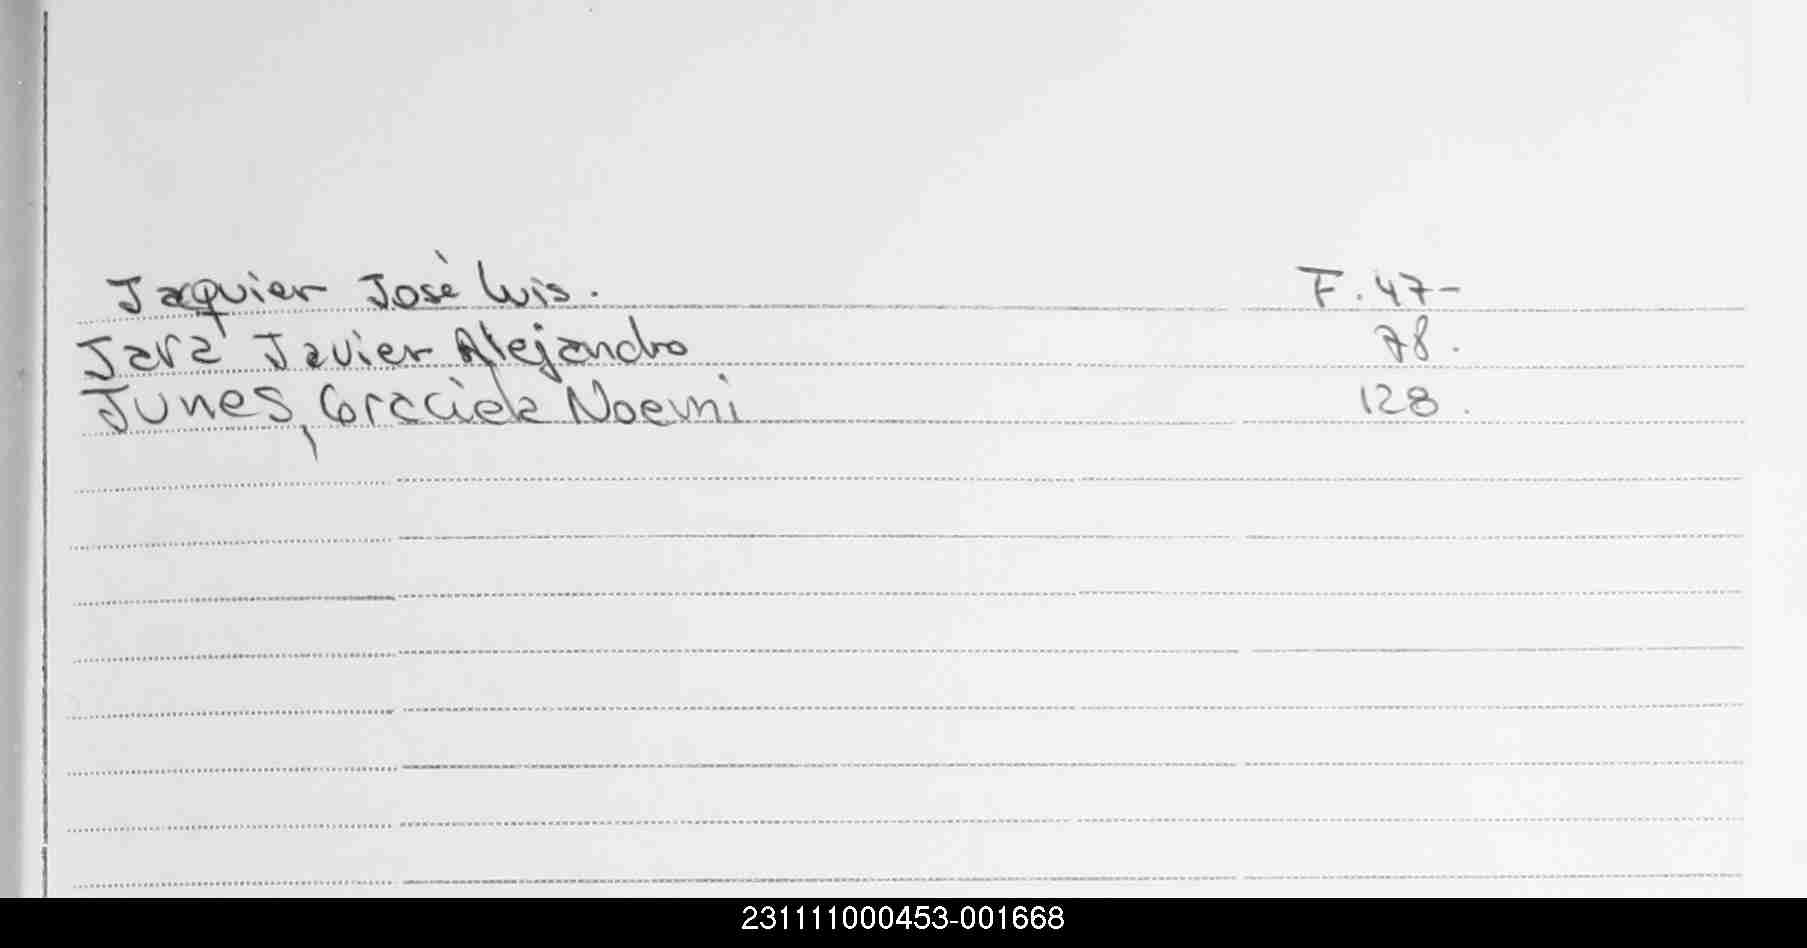 Jaquier José Luis. F. 47-
Jara Javier Alejandro 78.
Junes, Graciela Noemi 128.
231111000453-001668